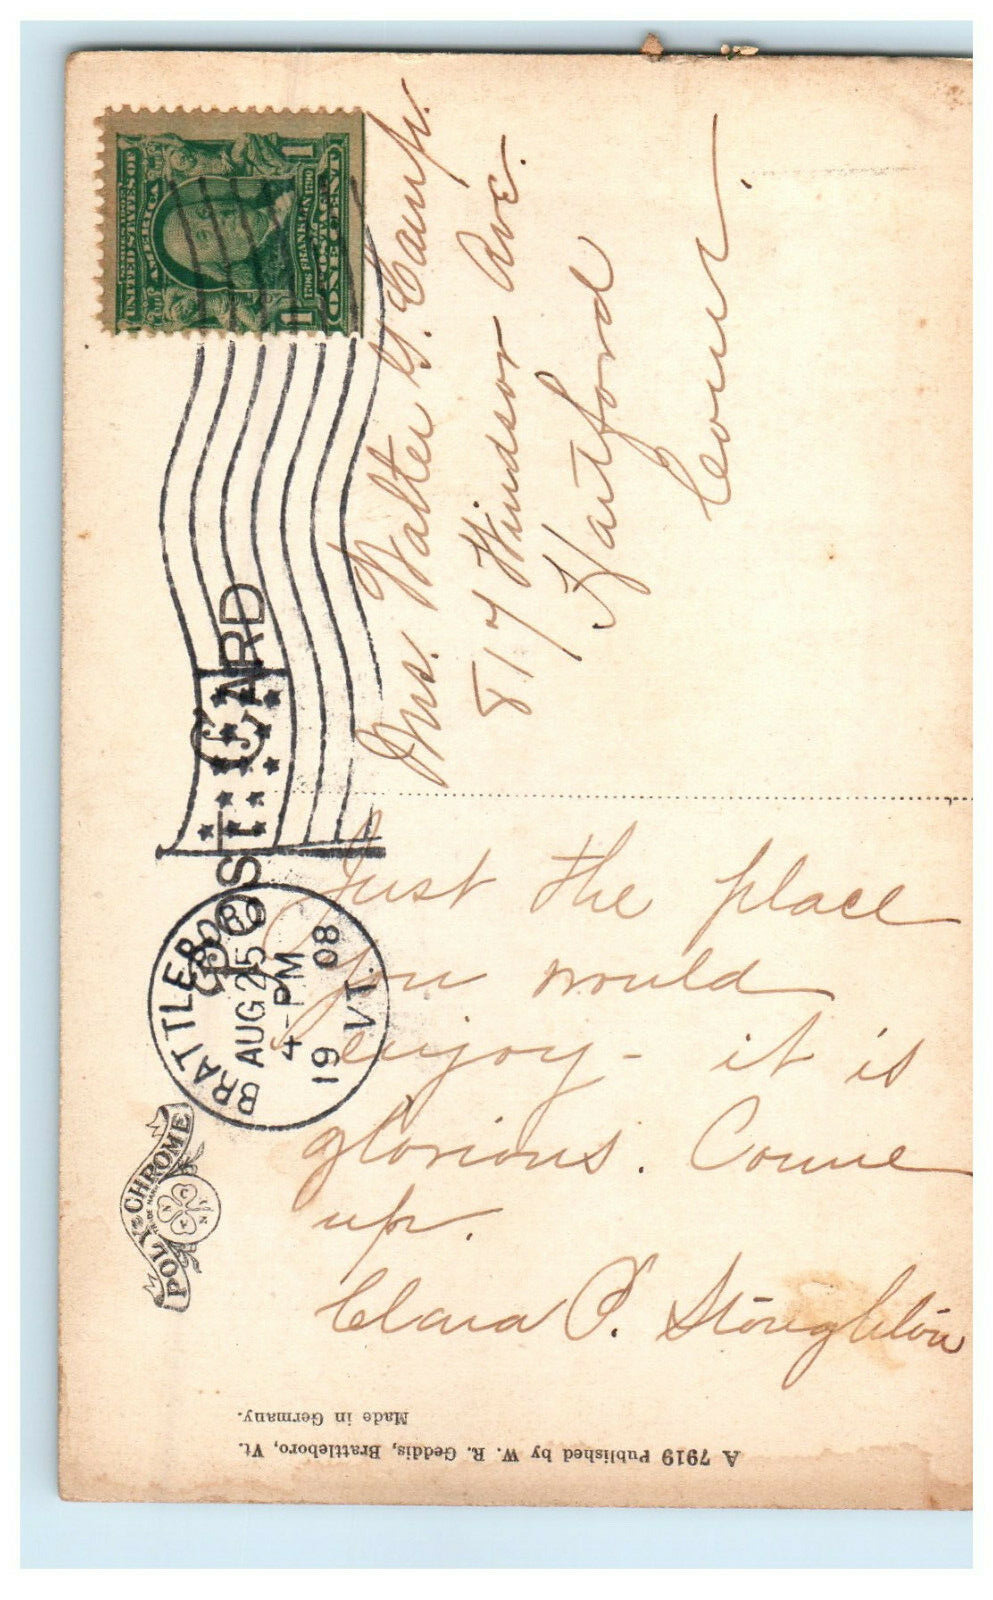 POST CARD
UNITED STATES OF AMERICA
1706 FRANKLIN 1790
POSTAGE
ONE CENT
1 1
BRATTLEBORO
AUG 25
4-PM
1908
VT.
Mrs. Walter G. Camp.
817 Windsor Ave.
Hartford
Conn.
Just the place
you would
enjoy - it is
glorious. Come
up.
Clara P. Stoughton
POLY CHROME
A 7919 Published by W. R. Geddis, Brattleboro, Vt.
Made in Germany.